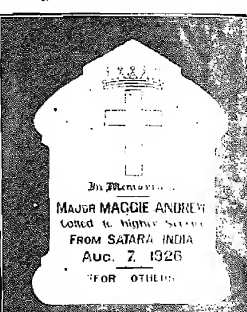 In Memoriam
MAJOR MAGGIE ANDREW
Called to higher Service
FROM SATARA INDIA
AUG. 7, 1926
"FOR OTHERS"